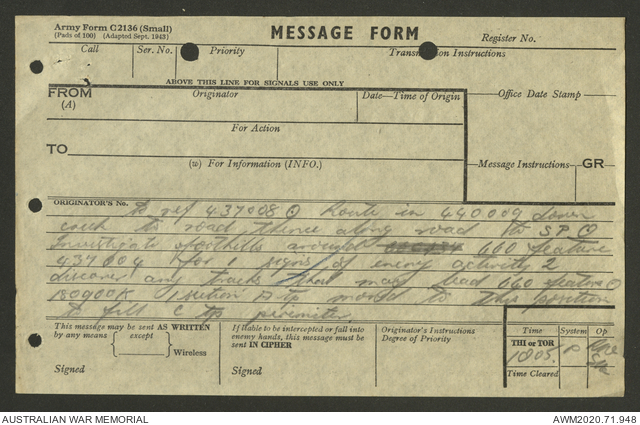 Army Form C2136 (Small)
(Pads of 100) (Adapted Sept. 1943)
MESSAGE FORM
Register No.
Call Ser. No. Priority Transmission Instructions
ABOVE THIS LINE FOR SIGNALS USE ONLY
FROM
(A)
Originator
Date—Time of Origin
Office Date Stamp
For Action
TO
(W) For Information (INFO.)
Message Instructions
GR
ORIGINATOR'S No.
to ref 437008 O Route in 440009 down
creek to road thence along road to S.P. O
Investigate foothills around 600 feature
437004 for 1 signs of enemy activity 2
discover any tracks that may lead 600 feature O
180900K 1 section D tp moved to this position
to fill C tp perimeter
This message may be sent AS WRITTEN
by any means (except
Wireless
Signed
If liable to be intercepted or fall into
enemy hands, this message must be
sent IN CIPHER
Signed
Originator's Instructions
Degree of Priority
Time System Op
THI or TOR
1005
Time Cleared
AUSTRALIAN WAR MEMORIAL
AWM2020.71.948